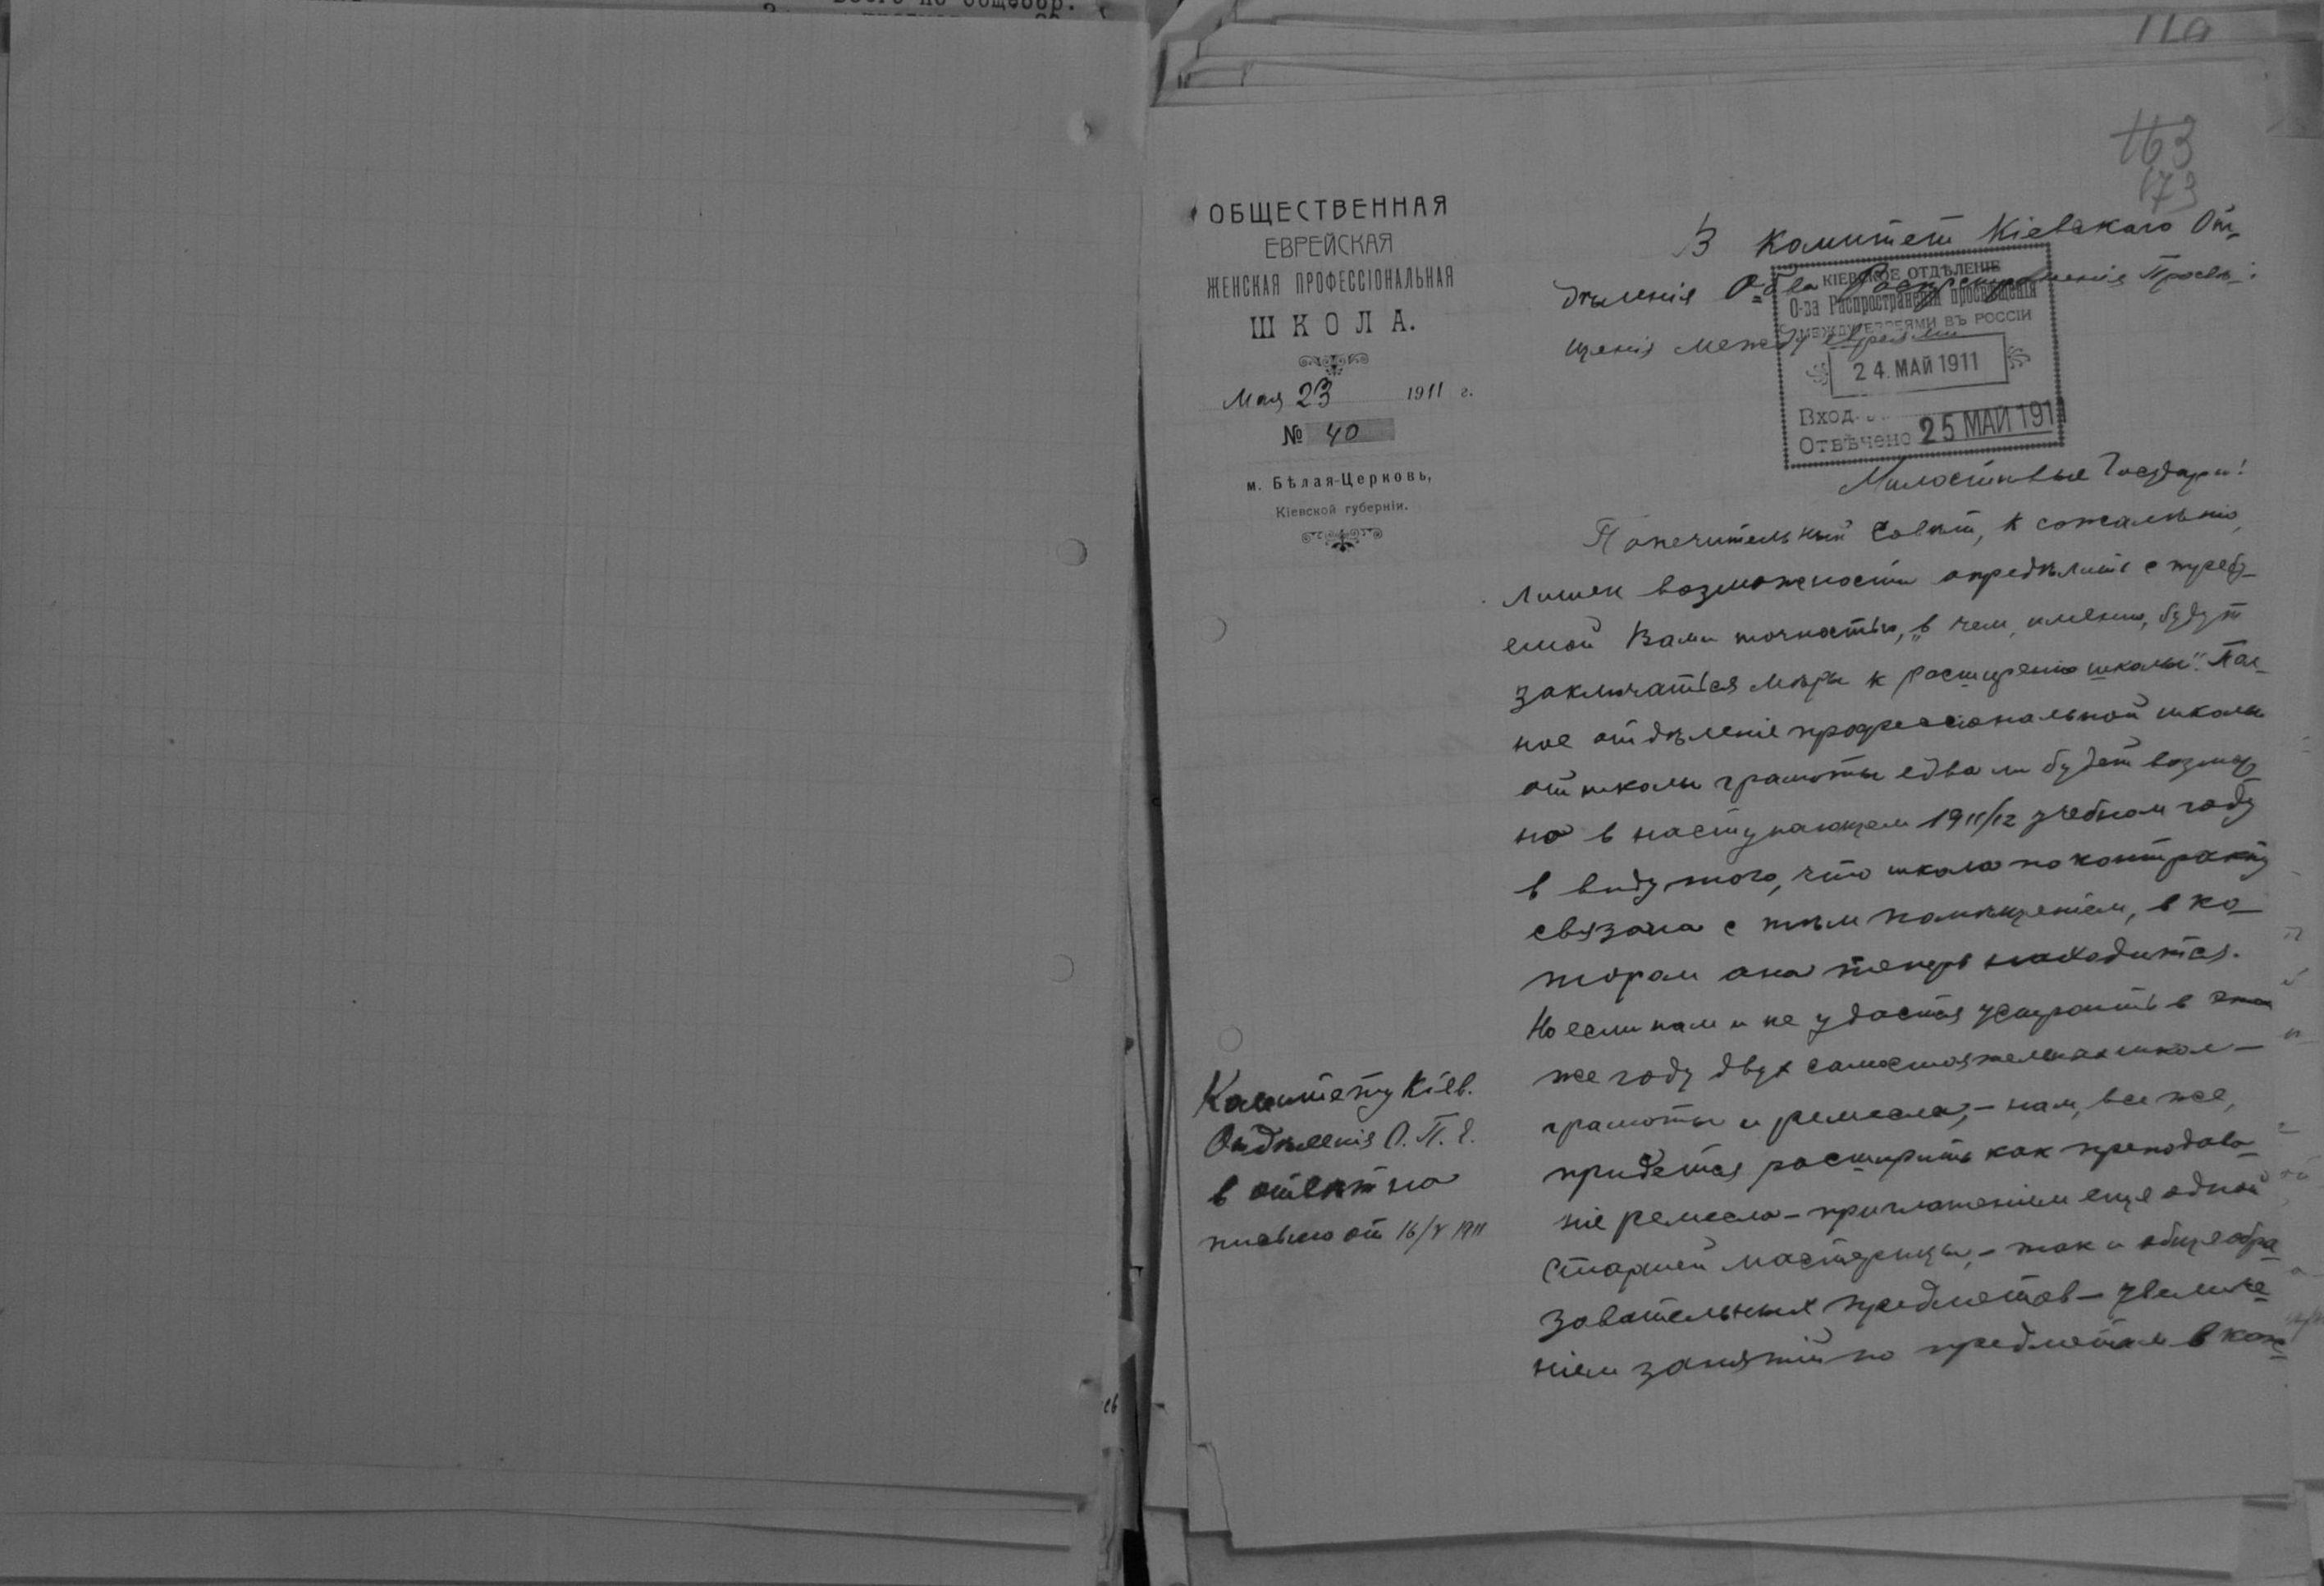 163
173
ОБЩЕСТВЕННАЯ
ЕВРЕЙСКАЯ
ЖЕНСКАЯ ПРОФЕССІОНАЛЬНАЯ
ШКОЛА.
Мая 23 1911 г.
№ 40
м. Бѣлая-Церковь,
Кіевской губерніи.
Комитету Кіев.
Отдѣленія О. П. Е.
в ответ на
письмо от 16/V 1911
В Комитет Кіевскаго От-
дѣленія О-ва Распространенія Просвѣ-
щенія между евреями
КІЕВСКОЕ ОТДѢЛЕНІЕ
О-ва Распространенія просвѣщенія
МЕЖДУ ЕВРЕЯМИ ВЪ РОССІИ
24. МАЙ 1911
Вход.
Отвѣчено 25 МАЙ 191
Милостивые Государи!
Попечительный Совѣт, к сожалѣнію,
лишен возможности опредѣлить с требу-
емой Вами точностью, „в чем, именно, будут
заключаться мѣры к расширенію школы". Пол-
ное отдѣленіе профессіональной школы
от школы грамоты едва ли будет возмож
но в наступающем 1911/12 учебном году
в виду того, что школа по контракту
связана с тѣм помѣщеніем, в ко-
тором она теперь находится.
Но если нам и не удастся устроить в этом
же году двух самостоятельных школ –
грамоты и ремесла, – нам, все же,
придется расширить как преподава-
ніе ремесла – приглашеніем еще одной
старшей мастерицы, – так и общеобра-
зовательных предметов – увеличе-
ніем занятій по предметам в каж-